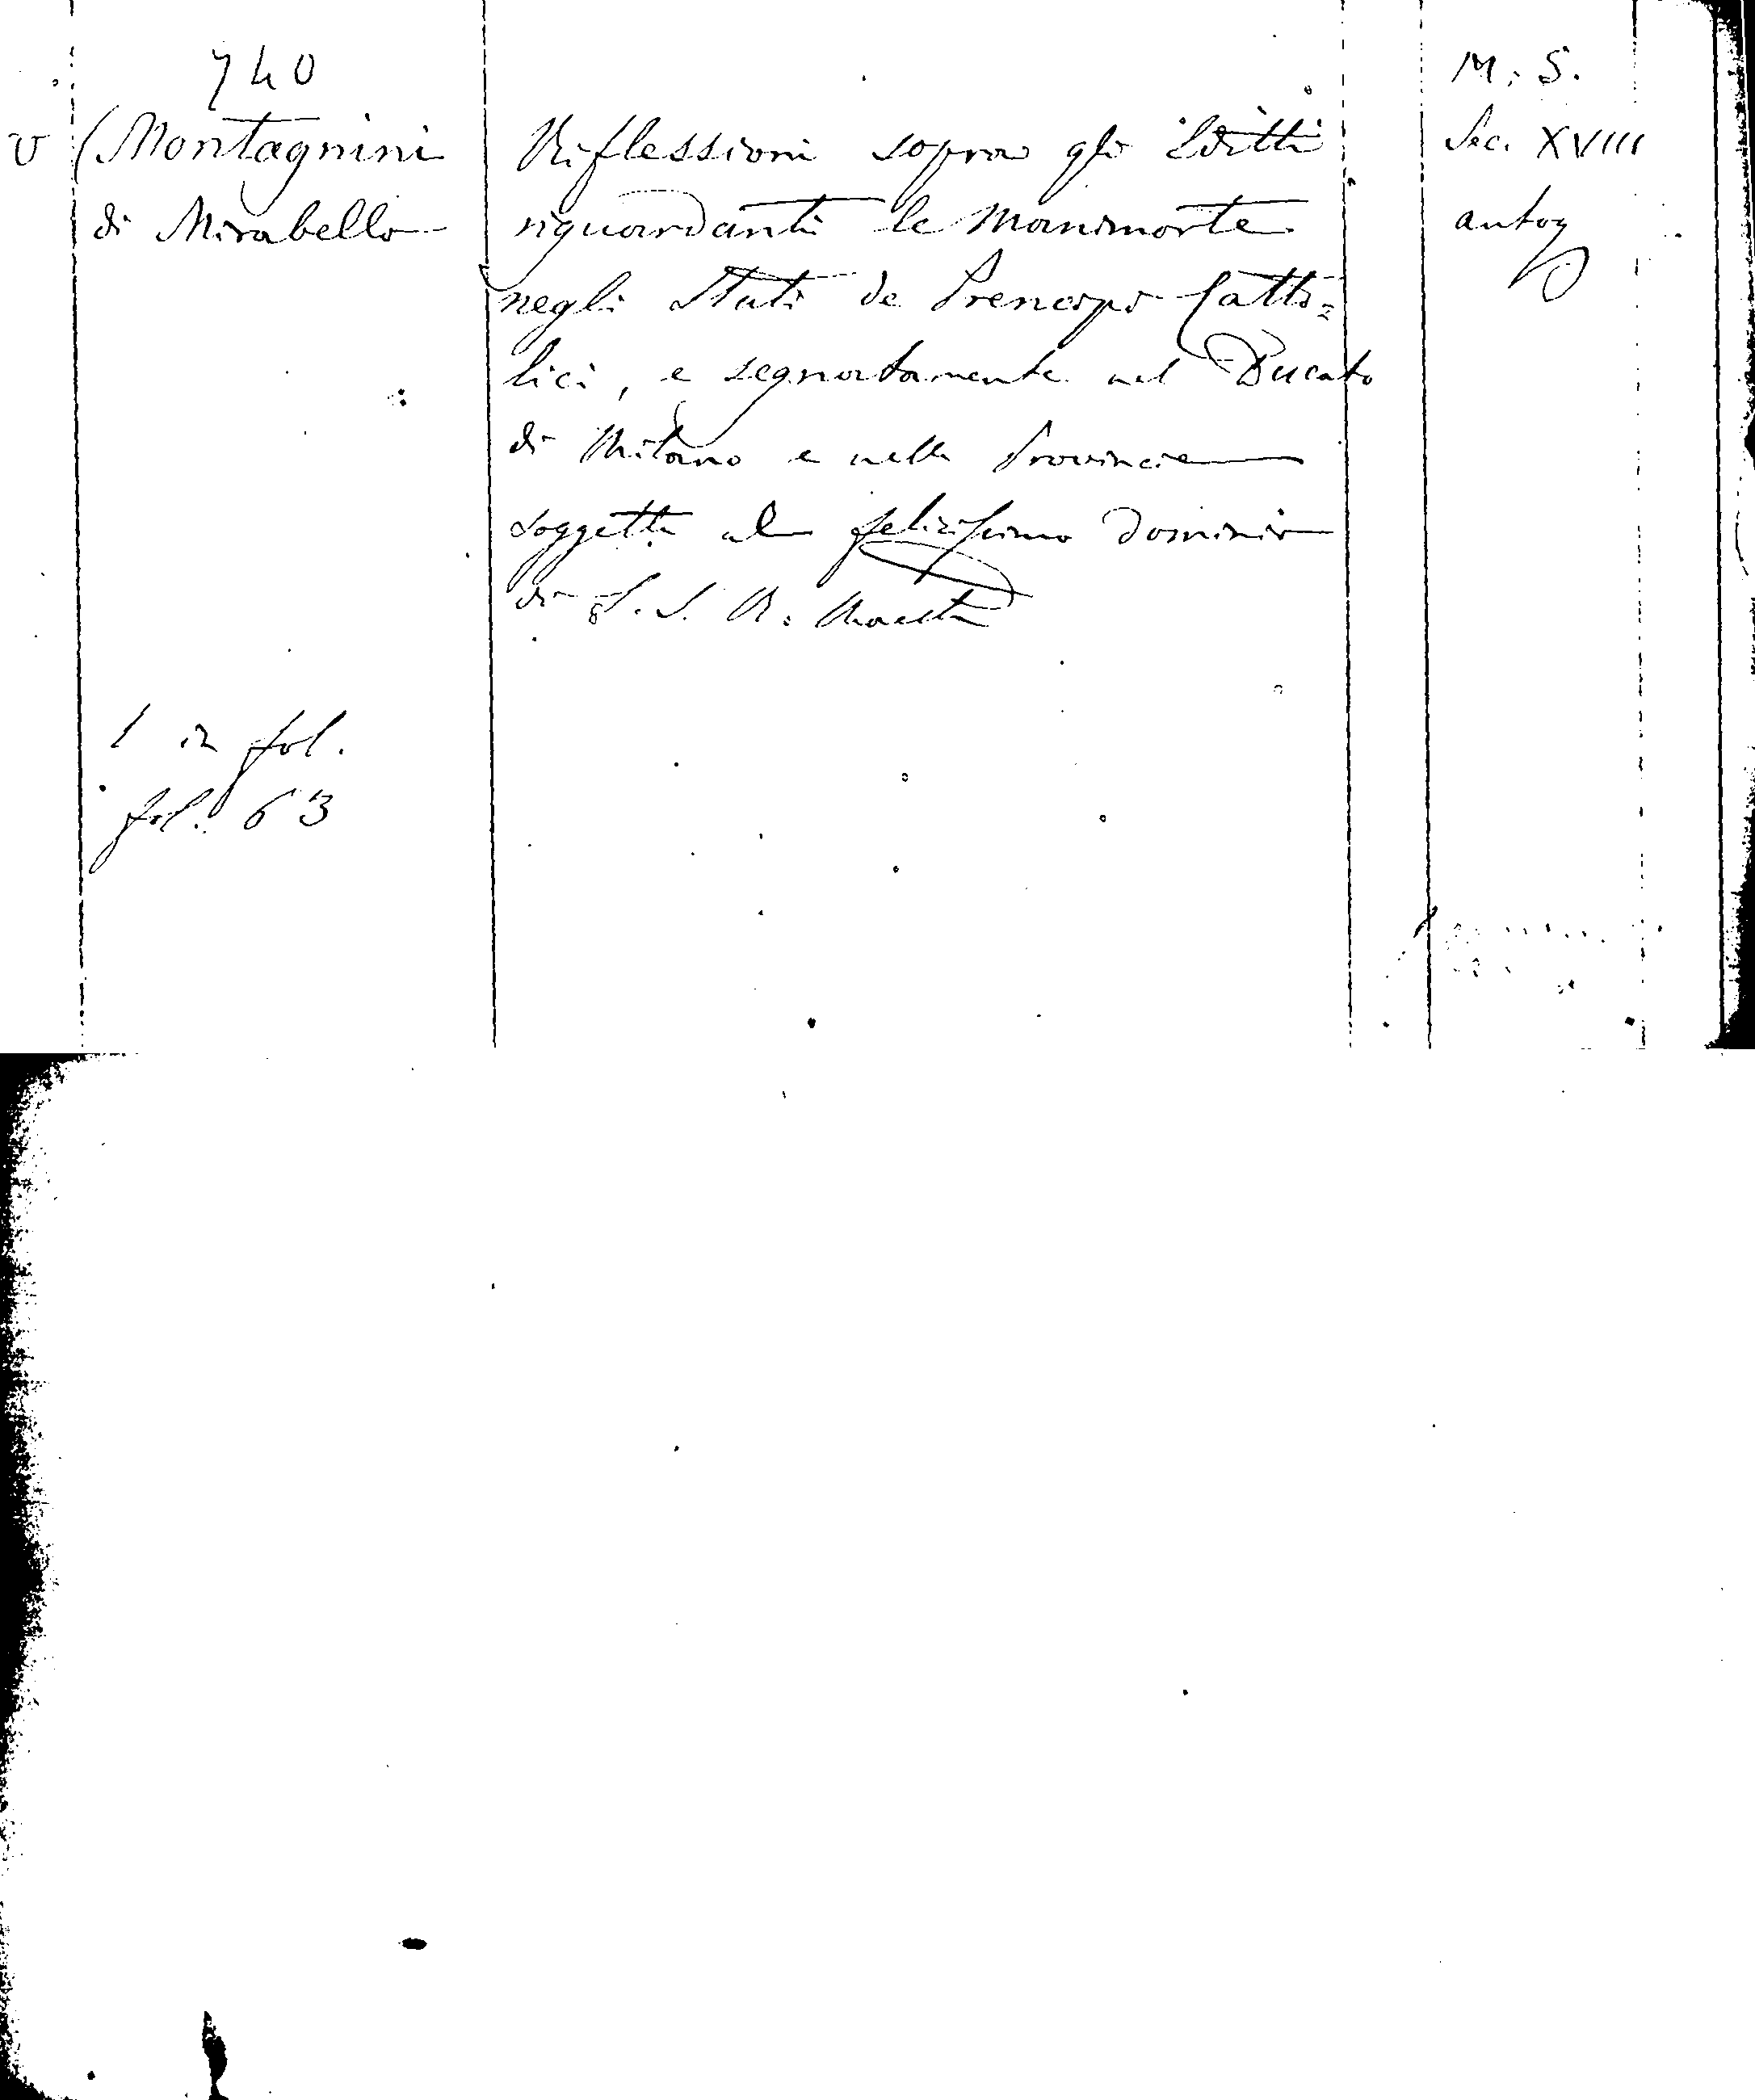 740
v (Montagnini
di Mirabello
Riflessioni sopra gli Editti
riguardanti le Manimorte
negli Stati de Prencipi Catto=
lici, e segnatamente nel Ducato
di Milano e nelle Provincie
soggette al felicissimo dominio
di S. S. R. Maestà
1 in fol.
fol. 63
M. S.
Sec. XVIII
autog